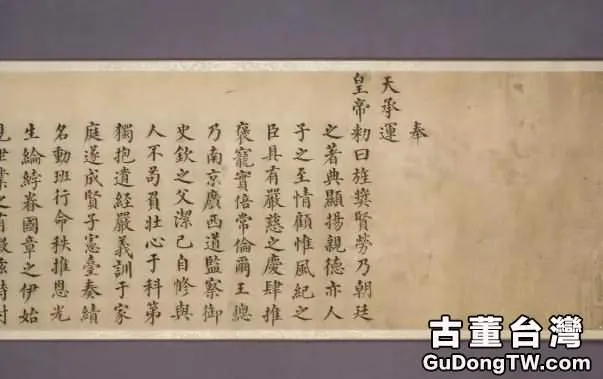 奉
天承運
皇帝勑曰旌奬賢勞乃朝廷
之著典顯揚親德亦人
子之至情顧惟風紀之
臣具有嚴慈之慶肆推
褒寵實倍常倫爾王總
乃南京廣西道監察御
史欽之父潔己自修與
人不苟負壯心于科第
獨抱遺經嚴義訓于家
庭遂成賢子憲臺奏績
名動班行命秩推恩光
生綸綍眷國章之伊始
世業之有
古董台灣
GuDongTW.com